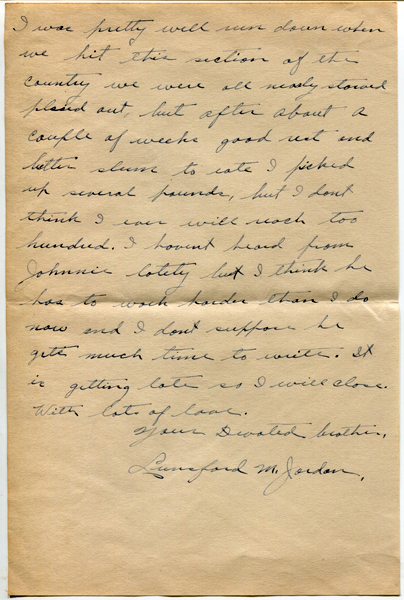 I was pretty well run down when
we hit this section of the
country we were all nearly starved
played out, but after about a
couple of weeks good rest and
better slum to eate I picked
up several pounds, but I dont
think I ever will reach too
hundred. I havent heard from
Johnnie lately but I think he
has to work harder than I do
now and I dont suppose he
gets much time to write. It
is getting late so I will close.
With lots of love.
Your Devoted brother,
Lunsford M. Jordan,